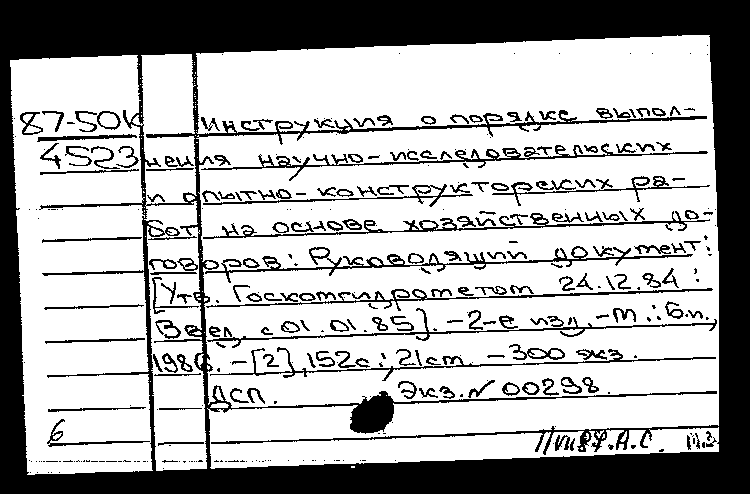 87-50к Инструкция о порядке выпол-
4523 нения научно-исследовательских
и опытно-конструкторских ра-
бот на основе хозяйственных до-
говоров: Руководящий документ:
[Утв. Госкомгидрометом 24.12.84:
Введ. с 01.01.85]. -2-е изд. -М.: Б.и.,
1986. -[2], 152с.; 21см. -300 экз.
ДСП. Экз. № 00298.
6
А.С.